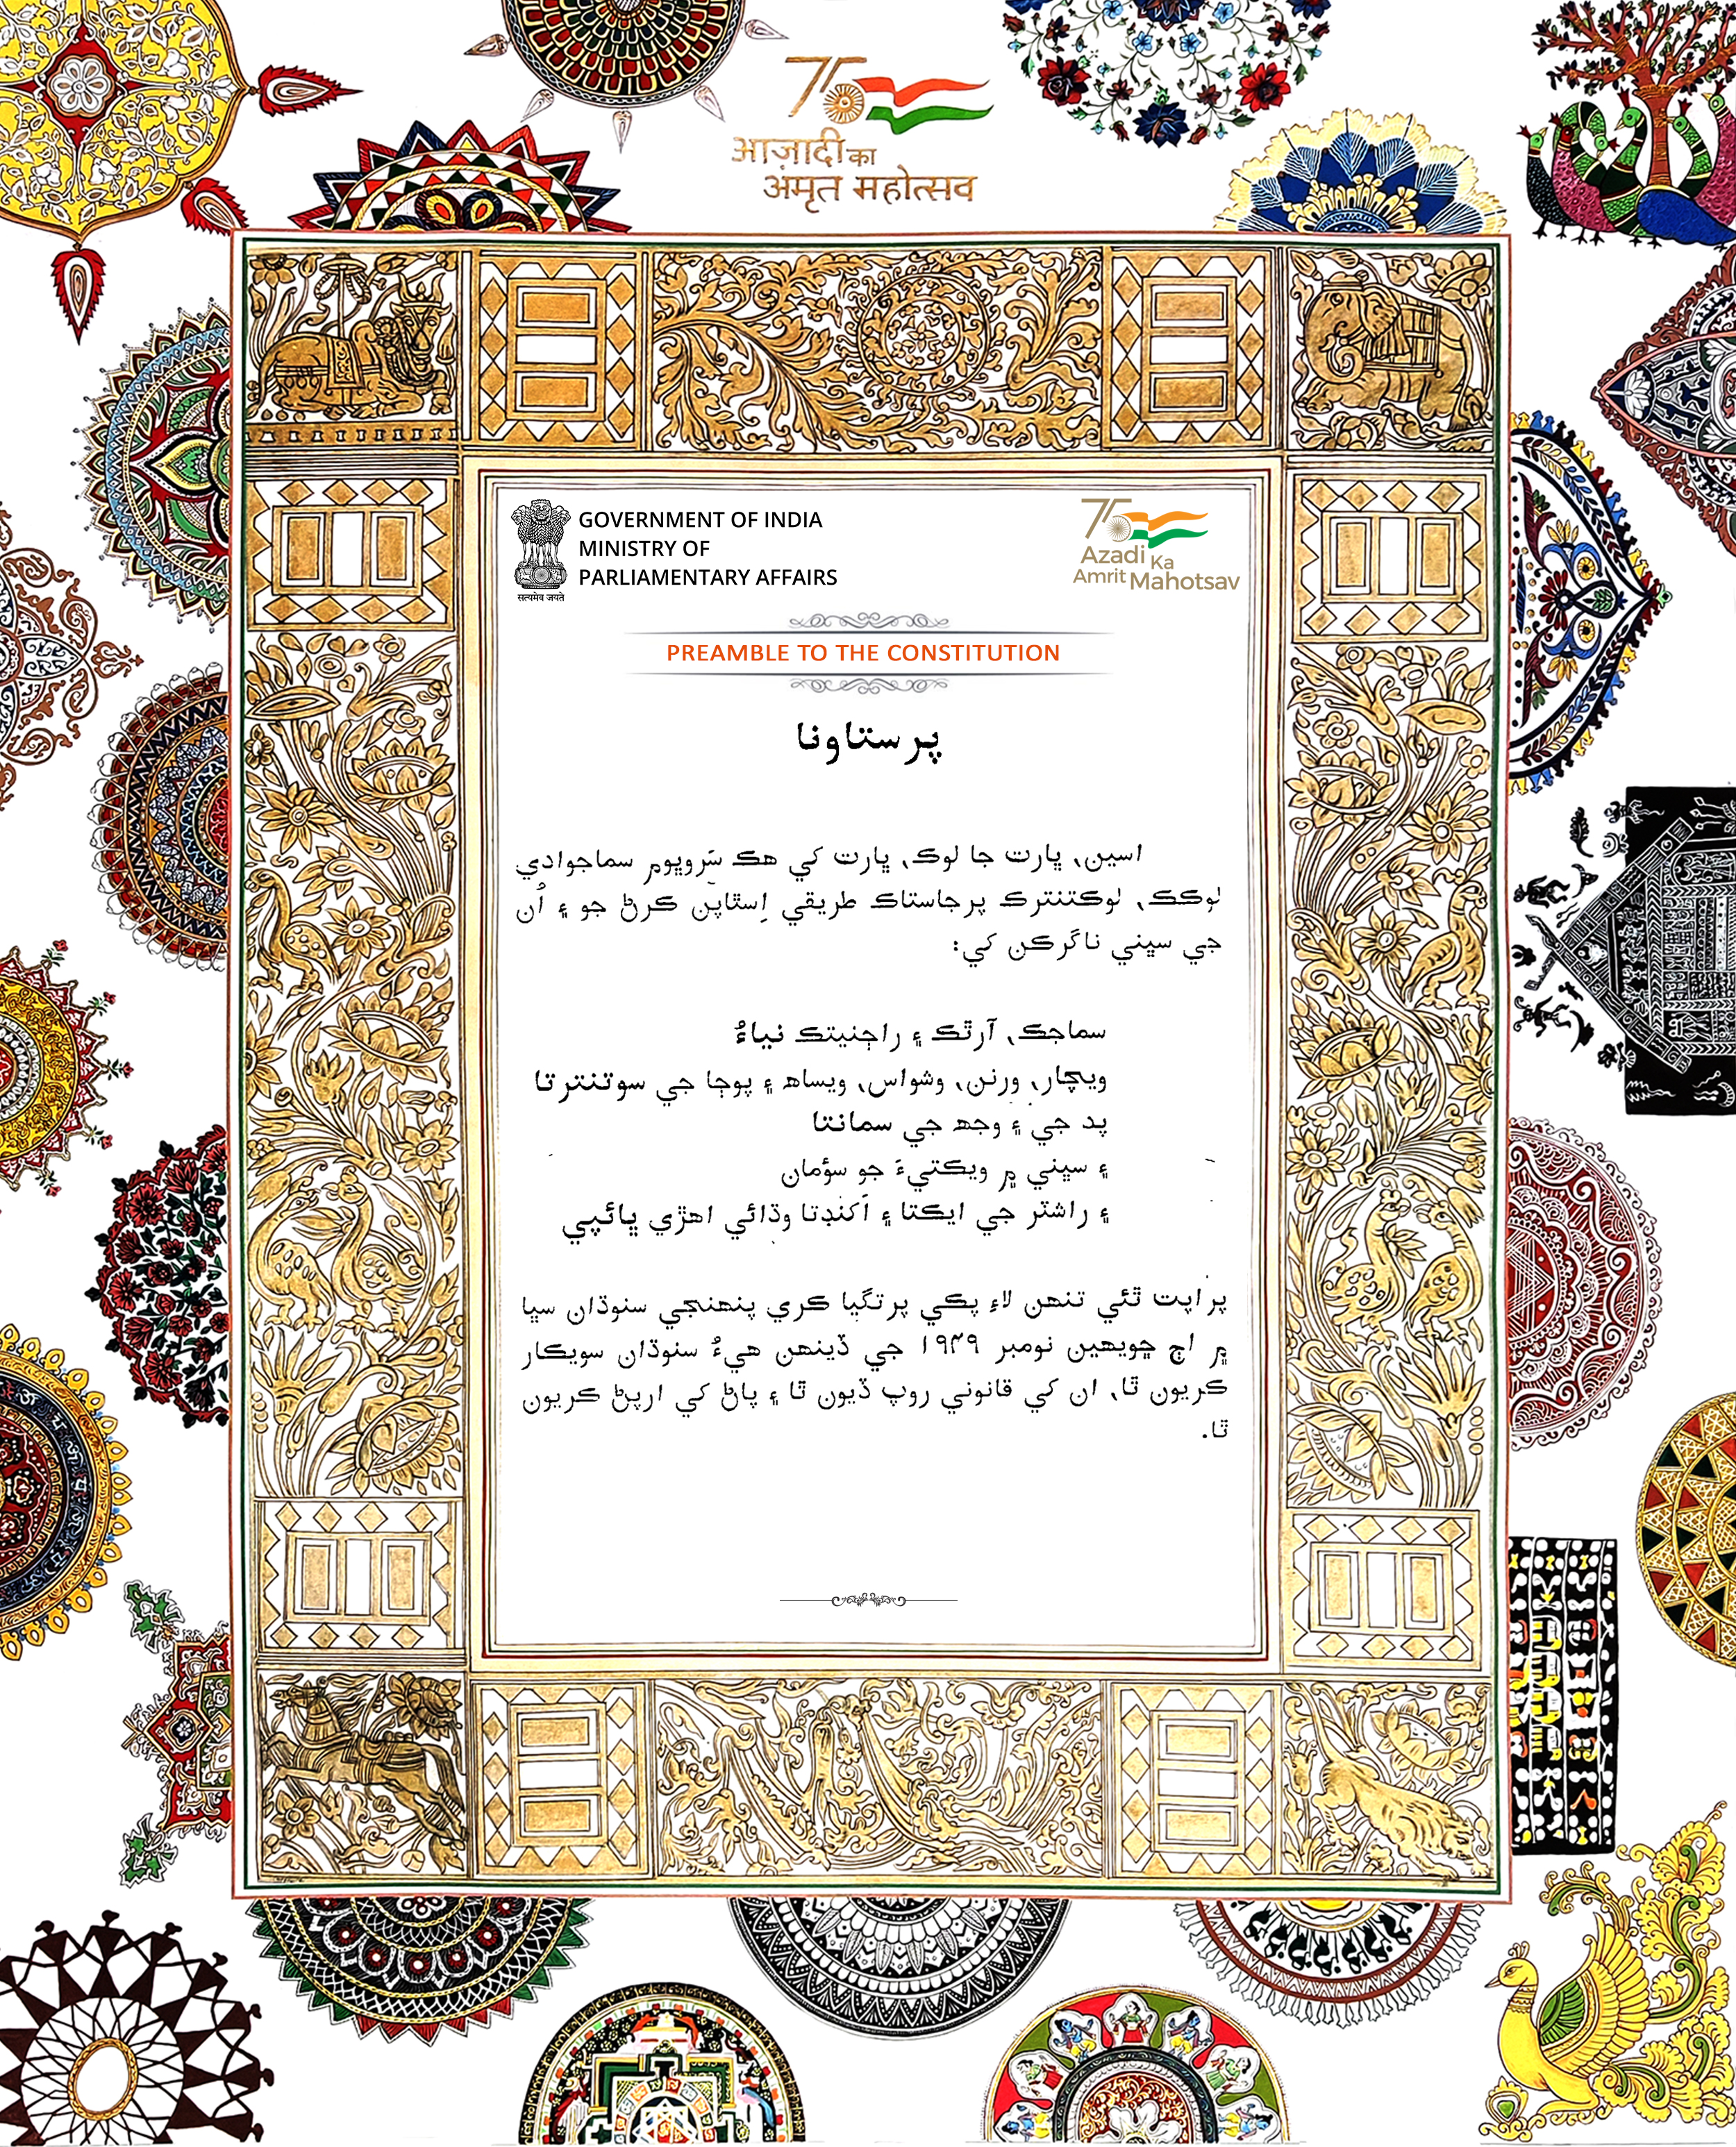 75
आज़ादी का
अमृत महोत्सव
GOVERNMENT OF INDIA
MINISTRY OF
PARLIAMENTARY AFFAIRS
सत्यमेव जयते
75
Azadi Ka
Amrit Mahotsav
PREAMBLE TO THE CONSTITUTION
پرستاونا
اسين، ڀارت جا لوڪ، ڀارت کي هڪ سَرو ڀوم سماجوادي
لوڪڪ، لوڪتنترڪ پرجاستاڪ طريقي اِسٿاپن ڪرڻ جو ۽ اُن
جي سڀني ناگرڪن کي:
سماجڪ، آرٿڪ ۽ راڄنيتڪ نياءُ
ويچار، ورنن، وشواس، ويساھ ۽ پوڄا جي سوتنترتا
پد جي ۽ وجھ جي سمانتا
۽ سڀني ۾ ويڪتيءَ جو سؤمان
۽ راشٽر جي ايڪتا ۽ اَکنڊتا وڌائي اهڙي ڀائپي
پراپت ٿئي تنهن لاءِ پڪي پرتگيا ڪري پنهنجي سنوڌان سڀا
۾ اڄ ڇويهين نومبر ۱۹۴۹ جي ڏينهن هيءُ سنوڌان سويڪار
ڪريون ٿا، ان کي قانوني روپ ڏيون ٿا ۽ پاڻ کي ارپڻ ڪريون
ٿا.